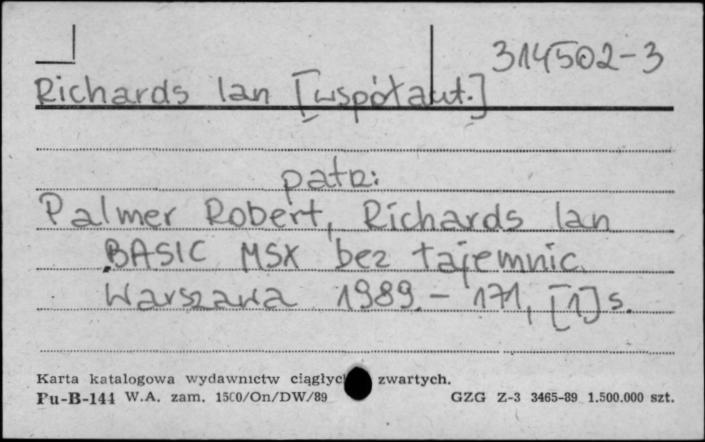 314502-3
Richards Ian [współaut.]
patrz:
Palmer Robert, Richards Ian
BASIC MSX bez tajemnic.
Warszawa 1989. - 171, [1] s.
Karta katalogowa wydawnictw ciągłyc zwartych.
Pu-B-144 W.A. zam. 1500/On/DW/89 GZG Z-3 3465-89 1.500.000 szt.